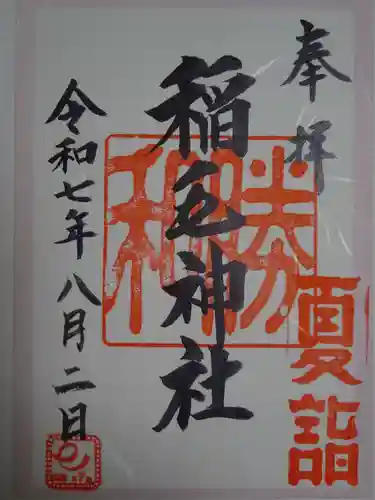 奉拝
夏詣
稲毛神社
勝和
令和七年八月二日